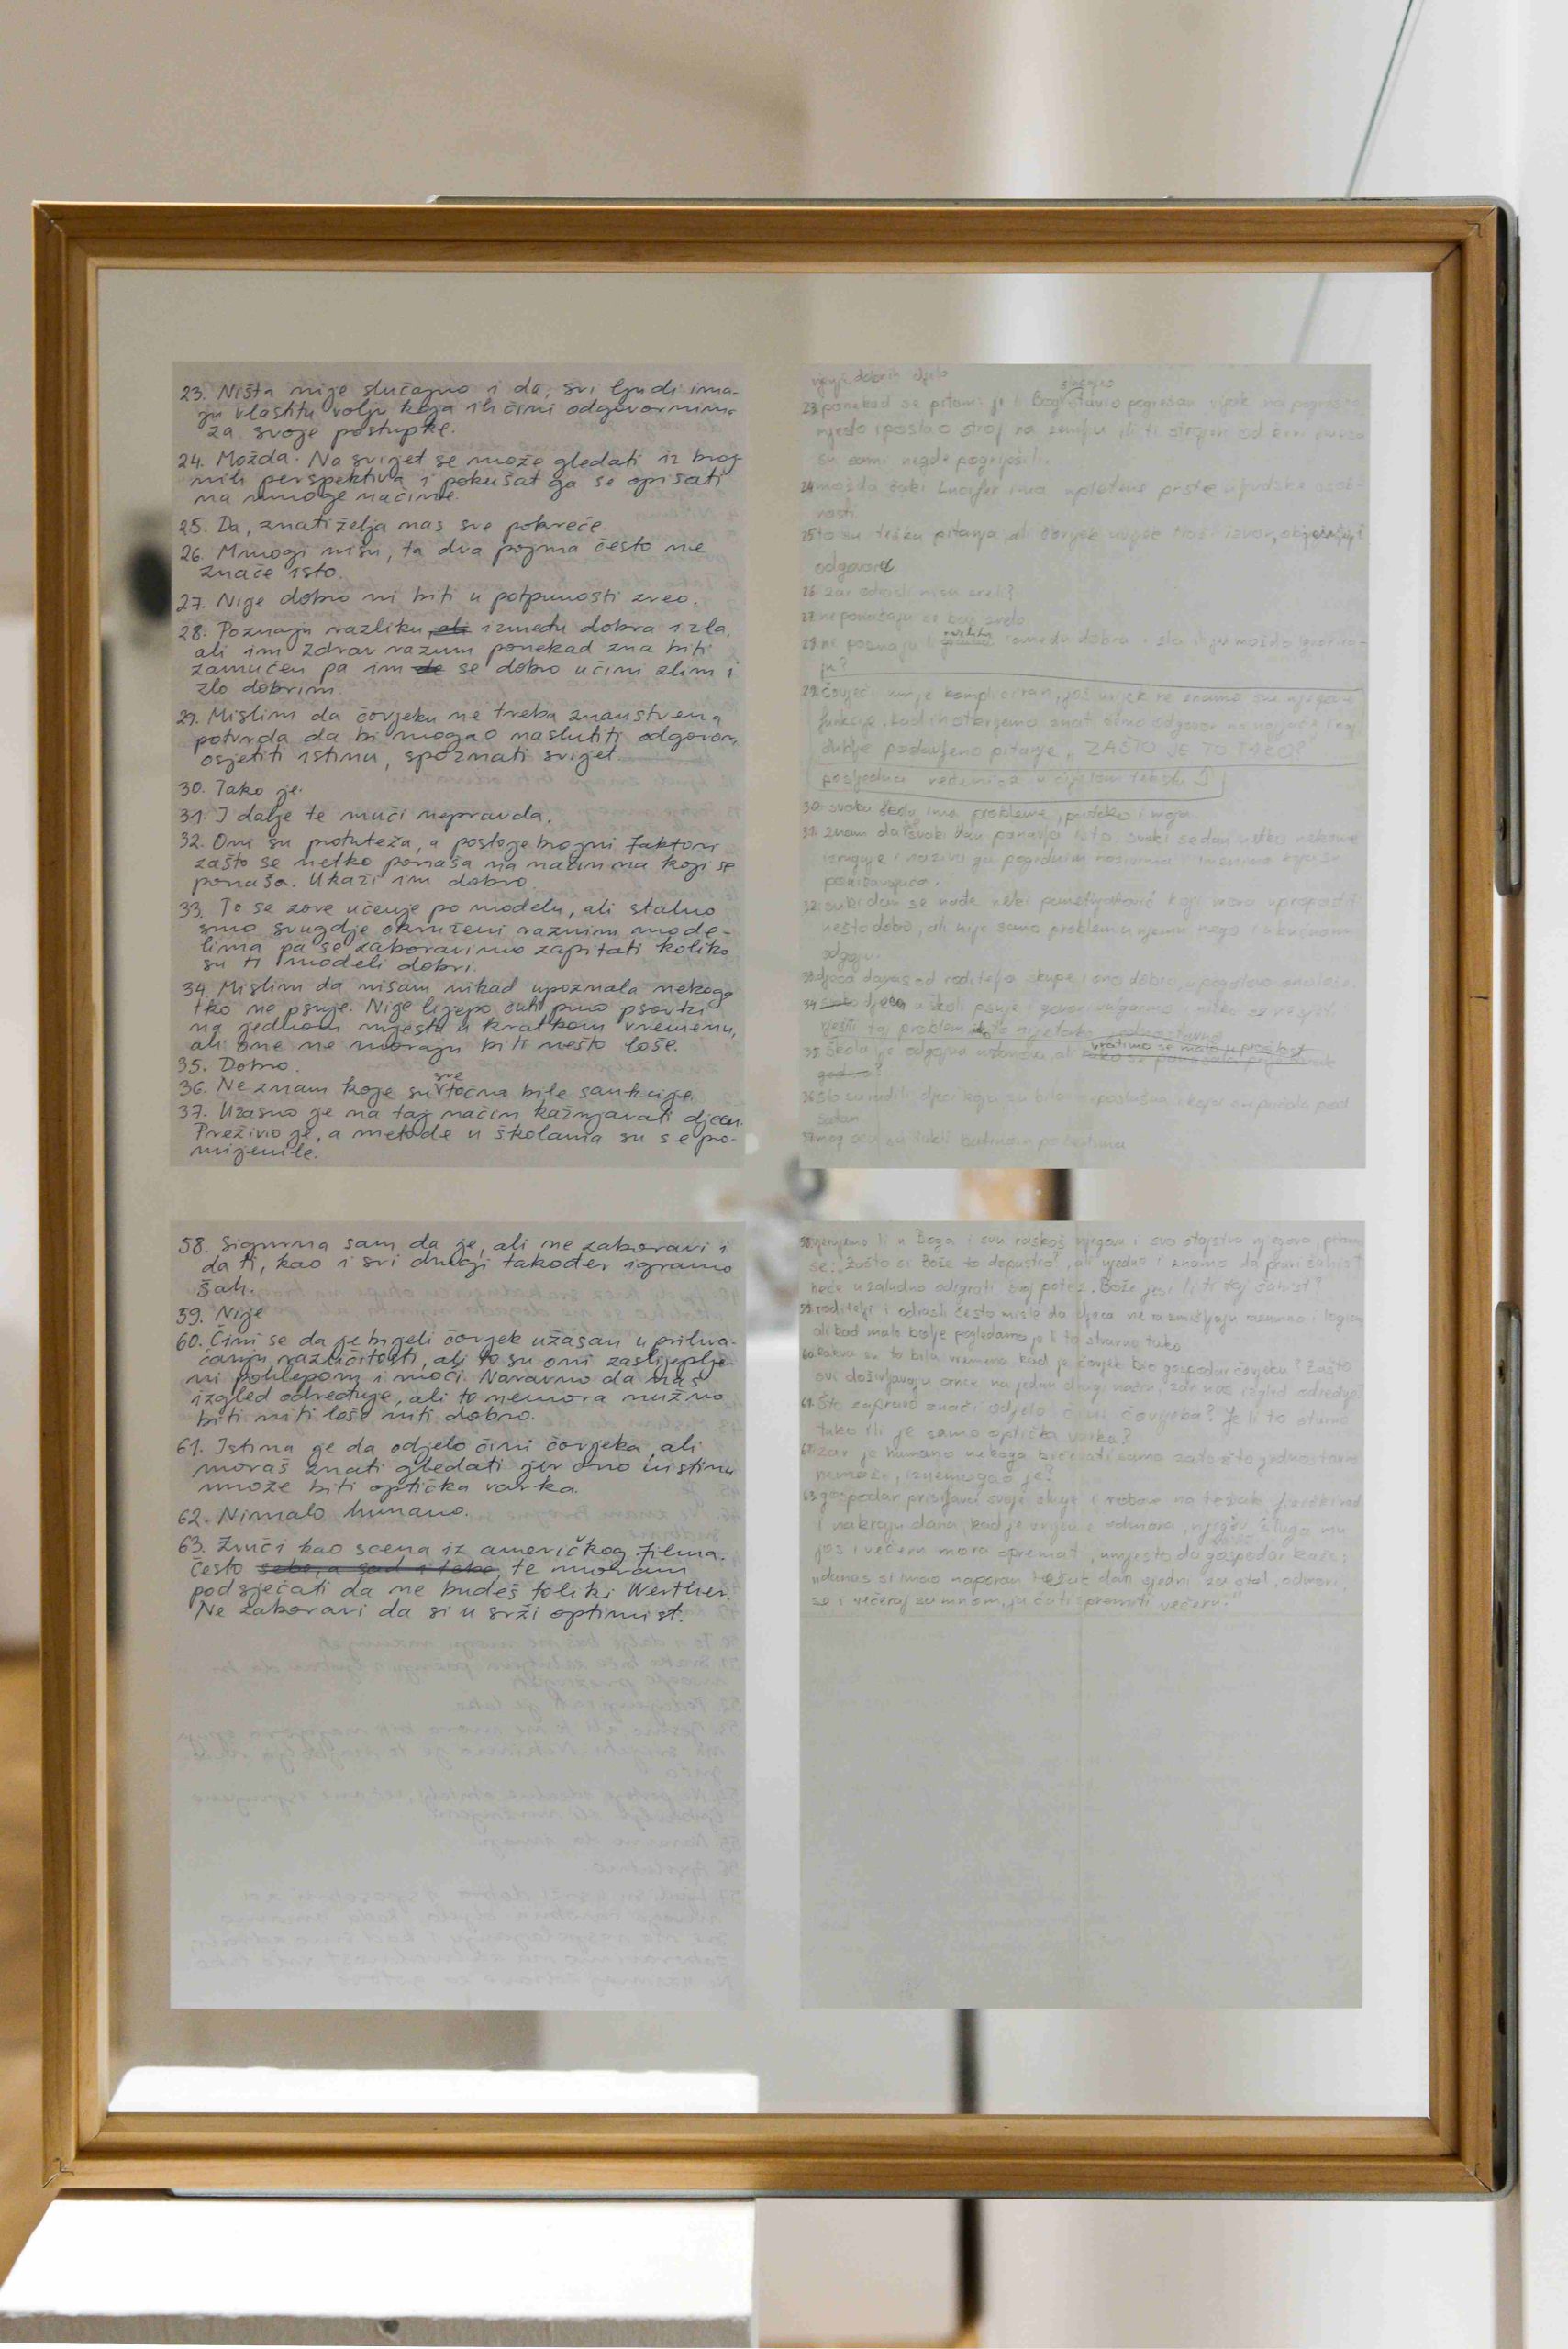 23. Ništa nije slučajno i da, svi ljudi ima-
ju vlastitu volju koja ih čini odgovornima
za svoje postupke.
24. Možda. Na svijet se može gledati iz broj-
nih perspektiva i pokušat ga se opisati
na mnoge načine.
25. Da, znatiželja nas sve pokreće.
26. Mnogi nisu, ta dva pojma često ne
znače isto.
27. Nije dobro ni biti u potpunosti zreo.
28. Poznaju razliku, ali između dobra i zla,
ali im zdrav razum ponekad zna biti
zamućen pa im de se dobro učini zlim i
zlo dobrim.
29. Mislim da čovjeku ne treba znanstvena
potvrda da bi mogao naslutiti odgovor,
osjetiti istinu, spoznati svijet.
30. Tako je.
31. I dalje te muči nepravda.
32. Oni su protuteža, a postoje brojni faktori
zašto se netko ponaša na način na koji se
ponaša. Ukaži im dobro.
33. To se zove učenje po modelu, ali stalno
smo svugdje okruženi raznim mode-
lima pa se zaboravimo zapitati koliko
su ti modeli dobri.
34. Mislim da nisam nikad upoznala nekoga
tko ne psuje. Nije lijepo čuti puno psovki
na jednom mjestu u kratkom vremenu,
ali one ne moraju biti nešto loše.
35. Dobro.
36. Ne znam koje su sve točno bile sankcije.
37. Užasno je na taj način kažnjavati djecu.
Preživio je, a metode u školama su se pro-
mijenile.
vanje dobrih djela
23 ponekad se pitam je li Bog slučajno stavio pogrešan vijak na pogrešno
mjesto i poslao stroj na zemlju ili ti strojevi od
su sami negdje pogriješili.
24 možda čak i Lucifer ima upletene prste u ljudske osob-
nosti.
25 to su teška pitanja, ali čovjek uvijek traži izvor, objašnjenje i
odgovore
26 zar odrasli nisu zreli?
27 ne ponašaju se baš zrelo
28. ne poznaju li razliku između dobra i zla ili ju možda ignorira-
ju?
29. čovječji um je kompliciran, još uvijek ne znamo sve njegove
funkcije. kad ih otkrijemo znat ćemo odgovor na najjače i naj
dublje postavljeno pitanje „ZAŠTO JE TO TAKO?"
posljednja rečenica u cijelom tekstu
30. svaka škola ima probleme, pa tako i moja.
31. znam da svaki dan ponavlja isto svaki sedan netko nekome
izruguje i naziva ga pogrdnim nazivima
ponižavajuća.
32. svaki dan se nađe neki pametnjaković koji mora upropastiti
nešto dobro, ali nije samo problem u njemu nego i u kućnom
odgoju.
33 djeca danas od roditelja skupe i ono dobro, a pogotovo ono loše.
34 djeca u školi psuje i govori vulgarno i nitko ne
riješiti taj problem ako to nije tako jednostavno
35 Škola je odgojna ustanova, ali vratimo se malo u prošlost
36 što su radili djeci koja su bila neposlušna i koja su pričala pod
satom
37 mog oca su tukli
58. Sigurna sam da je, ali ne zaboravi i
da ti, kao i svi drugi također igramo
šah.
59. Nije
60. Čini se da je bijeli čovjek užasan u prihva-
ćanju različitosti, ali to su oni zaslijeplje-
ni pohlepom i moći. Naravno da nas
izgled određuje, ali to nemora nužno
biti niti loše niti dobro.
61. Istina je da odjelo čini čovjeka, ali
moraš znati gledati jer ono uistinu
može biti optička varka.
62. Nimalo humano.
63. Zvuči kao scena iz američkog filma.
Često sebe, a sad i tebe, te moram
podsjećati da ne budeš toliki Werther.
Ne zaboravi da si u srži optimist.
58 vjerujemo li u Boga i svu raskoš njegovu i svo otajstvo njegovo, pitamo
se: „Zašto si Bože to dopustio?, ali ujedno i znamo da pravi šahist
neće uzaludno odigrati svoj potez. Bože jesi li ti taj šahist?
59. roditelji i odrasli često misle da djeca ne razmišljaju razumno i logično
ali kad malo bolje pogledamo je li to stvarno tako
60 kakva su to bila vremena kad je čovjek bio gospodar čovjeku? Zašto
svi doživljavaju crnce na jedan drugi način, zar nas izgled određuje?
61. Što zapravo znači odjelo čini čovjeka? Je li to stvarno
tako ili je samo optička varka?
62 Zar je humano nekoga bičevati samo zato što jednostavno
nemože, iznemogao je?
63 gospodar prisiljava svoje sluge i robove na težak fizički rad
i nakraju dana, kad je vrijeme odmora, njegov sluga mu
još i večeru mora spremat, umjesto da gospodar kaže:
„danas si imao naporan težak dan sjedni za stol, odmori
se i večeraj sa mnom, ja ću ti spremiti večeru."